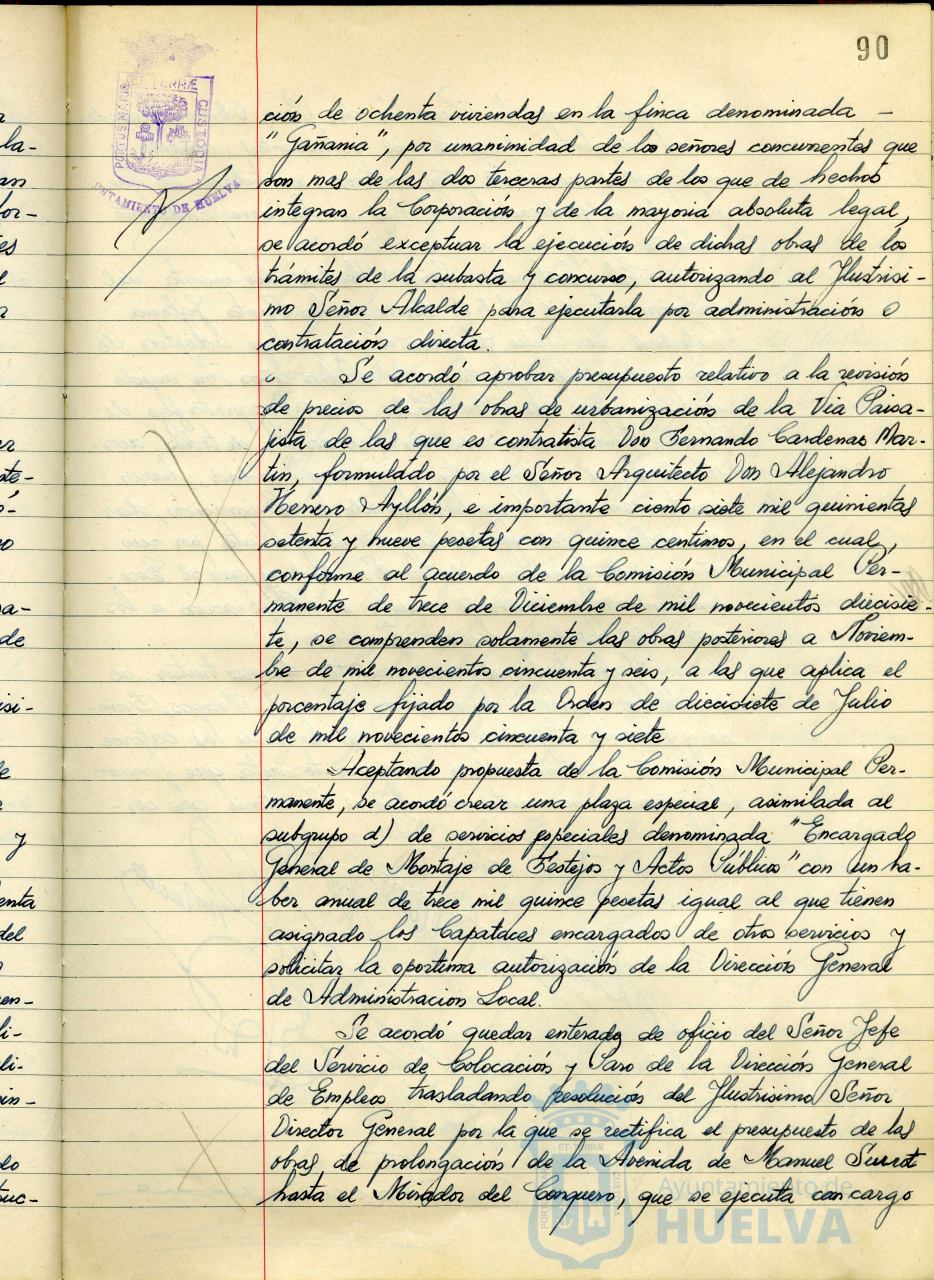 90
PORTUS MARIS ET TERRÆ CUSTODIA
AYUNTAMIENTO DE HUELVA
ción de ochenta viviendas en la finca denominada –
"Gañania", por unanimidad de los señores concurrentes que
son mas de las dos terceras partes de los que de hechos
integran la Corporación y de la mayoria absoluta legal,
se acordó exceptuar la ejecución de dichas obras de los
trámites de la subasta y concurso, autorizando al Ilustrisi-
mo Señor Alcalde para ejecutarla por administración o
contratación directa.
Se acordó aprobar presupuesto relativo a la revisión
de precios de las obras de urbanización de la Via Paisa-
jista de las que es contratista Don Fernando Cardenas Mar-
tin, formulado por el Señor Arquitecto Don Alejandro
Herrero Ayllón, e importante ciento siete mil quinientas
setenta y nueve pesetas con quince centimos, en el cual,
conforme al acuerdo de la Comisión Municipal Per-
manente de trece de Diciembre de mil novecientos diecisie-
te, se comprenden solamente las obras posteriores a Noviem-
bre de mil novecientos cincuenta y seis, a las que aplica el
porcentaje fijado por la Orden de diecisiete de Julio
de mil novecientos cincuenta y siete
Aceptando propuesta de la Comisión Municipal Per-
manente, se acordó crear una plaza especial, asimilada al
subgrupo d) de servicios especiales denominada "Encargado
General de Montaje de Festejos y Actos Públicos" con un ha-
ber anual de trece mil quince pesetas igual al que tienen
asignado los Capataces encargados de otros servicios y
solicitar la oportuna autorización de la Dirección General
de Administracion Local.
Se acordó quedar enterada de oficio del Señor Jefe
del Servicio de Colocación y Paro de la Dirección General
de Empleos trasladando resolución del Ilustrisimo Señor
Director General por la que se rectifica el presupuesto de las
obras de prolongación de la Avenida de Manuel Siurot
hasta el Mirador del Conquero, que se ejecuta con cargo
Ayuntamiento de
HUELVA